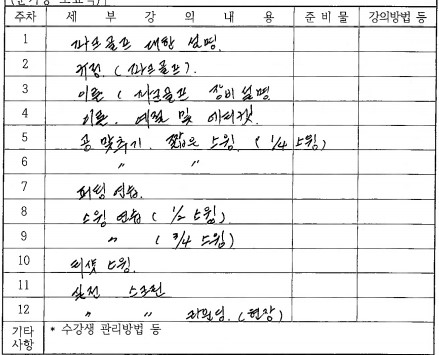 주차 세부강의내용 준비물 강의방법 등
1 파크골프 대한 설명.
2 규정. (파크골프).
3 이론 (파크골프 장비설명
4 이론. 예절 및 에티켓.
5 공 맞추기. 짧은 스윙. (1/4 스윙)
6 〃 〃
7 퍼팅 연습.
8 스윙 연습 (1/2 스윙)
9 〃 (3/4 스윙)
10 티샷 스윙.
11 실전 스크린
12 〃 〃 라운딩. (현장)
기타사항 * 수강생 관리방법 등